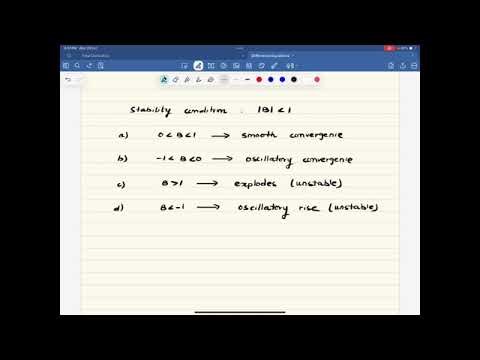 Stability condition : |B| < 1
a) 0 < B < 1 → smooth convergenie
b) -1 < B < 0 → oscillatory convergenie
c) B > 1 → explodes (unstable)
d) B < -1 → oscillatory rise (unstable)